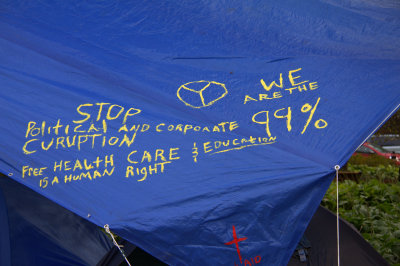 STOP
POLITICAL AND CORPORATE
CURUPTION
FREE HEALTH CARE & EDUCATION
IS A HUMAN RIGHT
WE
ARE THE
99%
AID